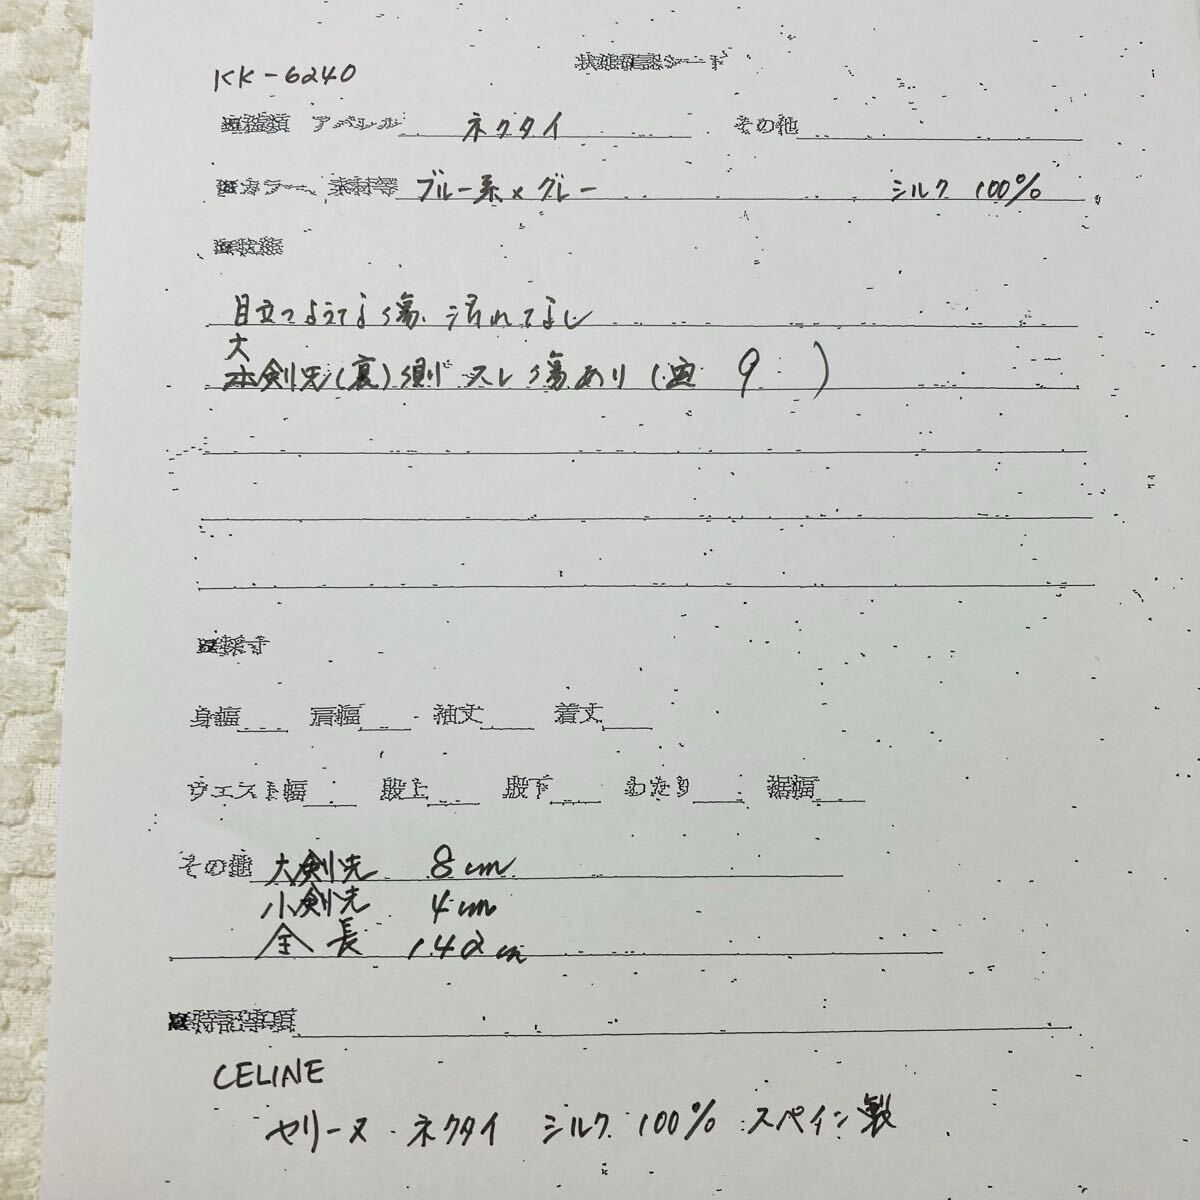 KK-6240
状態確認シート
種類 アパレル ネクタイ その他
カラー、素材等 ブルー系×グレー シルク 100%
状態
目立つようなキズ 汚れなし
大
剣先(裏)側 スレ傷あり( 9 )
採寸
身幅 肩幅 袖丈 着丈
ウエスト幅 股上 股下 わたり 裾幅
その他 大剣先 8cm
小剣先 4cm
全長 142cm
特記事項
CELINE
セリーヌ ネクタイ シルク 100% スペイン製